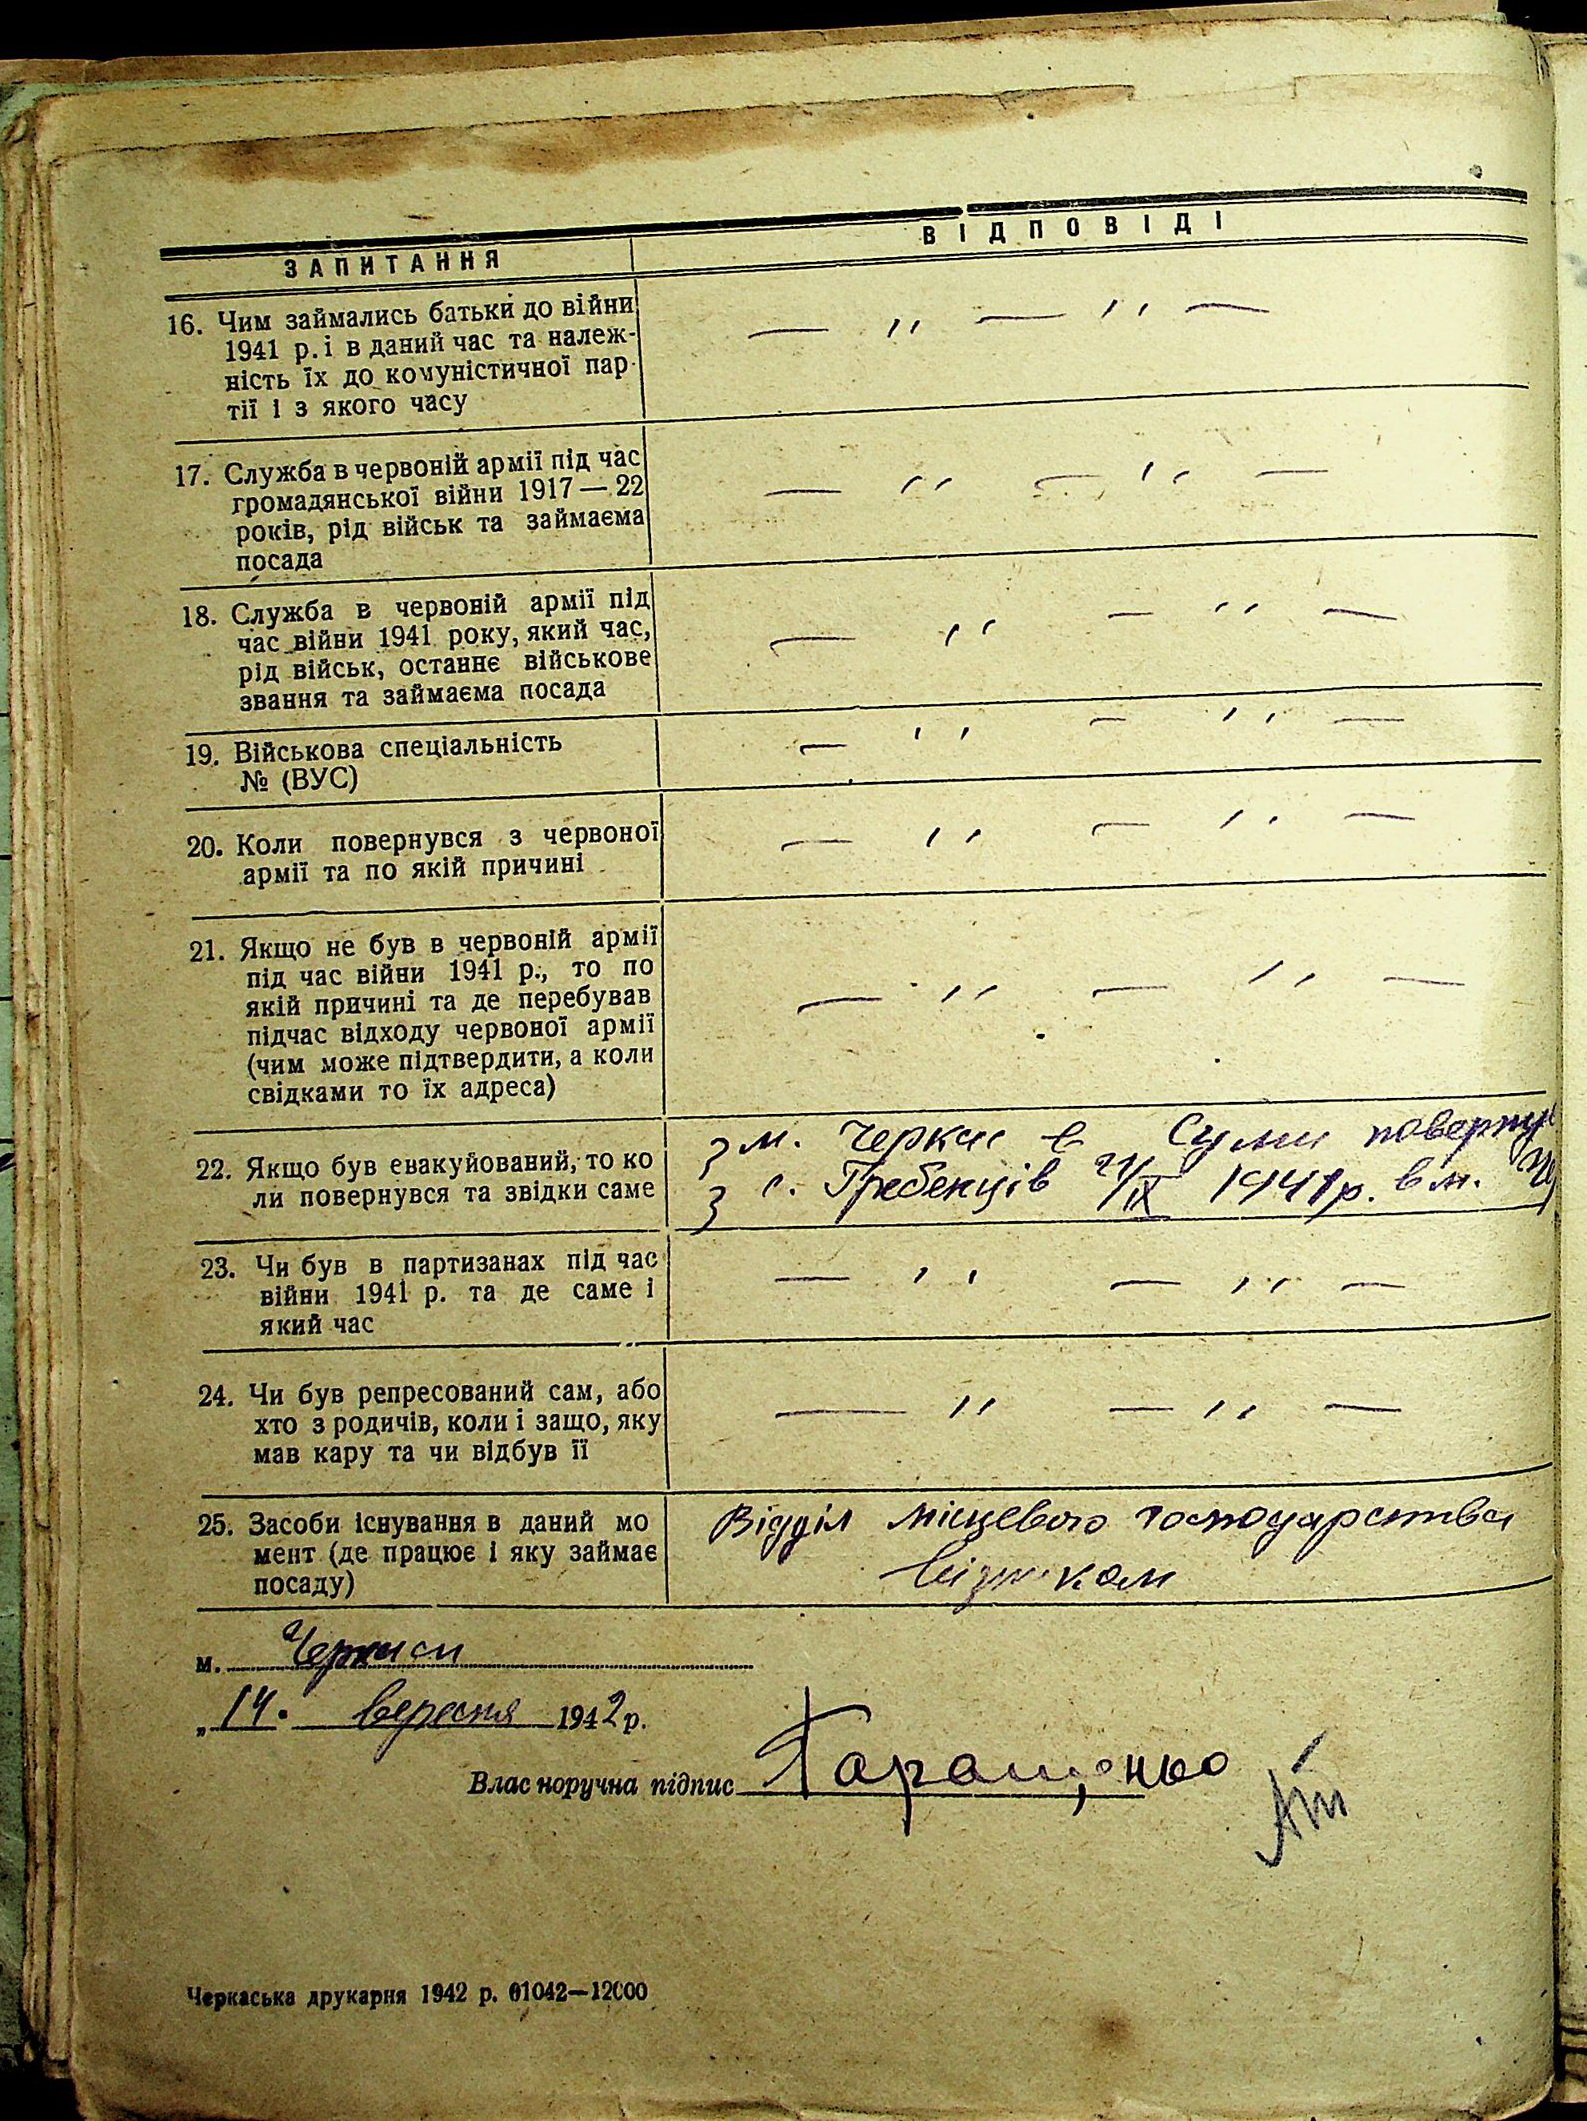 ЗАПИТАННЯ
ВІДПОВІДІ
16. Чим займались батьки до війни
1941 р. і в даний час та належ-
ність їх до комуністичної пар-
тії і з якого часу
— „ — „ —
17. Служба в червоній армії під час
громадянської війни 1917 — 22
років, рід військ та займаєма
посада
— „ — „ —
18. Служба в червоній армії під
час війни 1941 року, який час,
рід військ, останнє військове
звання та займаєма посада
— „ — „ —
19. Військова спеціальність
№ (ВУС)
— „ — „ —
20. Коли повернувся з червоної
армії та по якій причині
— „ — „ —
21. Якщо не був в червоній армії
під час війни 1941 р., то по
якій причині та де перебував
підчас відходу червоної армії
(чим може підтвердити, а коли
свідками то їх адреса)
— „ — „ —
22. Якщо був евакуйований, то ко
ли повернувся та звідки саме
з м. Черкас в Суми поверну
з с. Гребенців /IX 1941 р. в м.
23. Чи був в партизанах під час
війни 1941 р. та де саме і
який час
— „ — „ —
24. Чи був репресований сам, або
хто з родичів, коли і защо, яку
мав кару та чи відбув її
— „ — „ —
25. Засоби існування в даний мо
мент (де працює і яку займає
посаду)
Відділ місцевого господарства
візником
м. Черкаси
„14. вересня 1942 р.
Власноручна підпис Таращенко
Черкаська друкарня 1942 р. 01042—12000